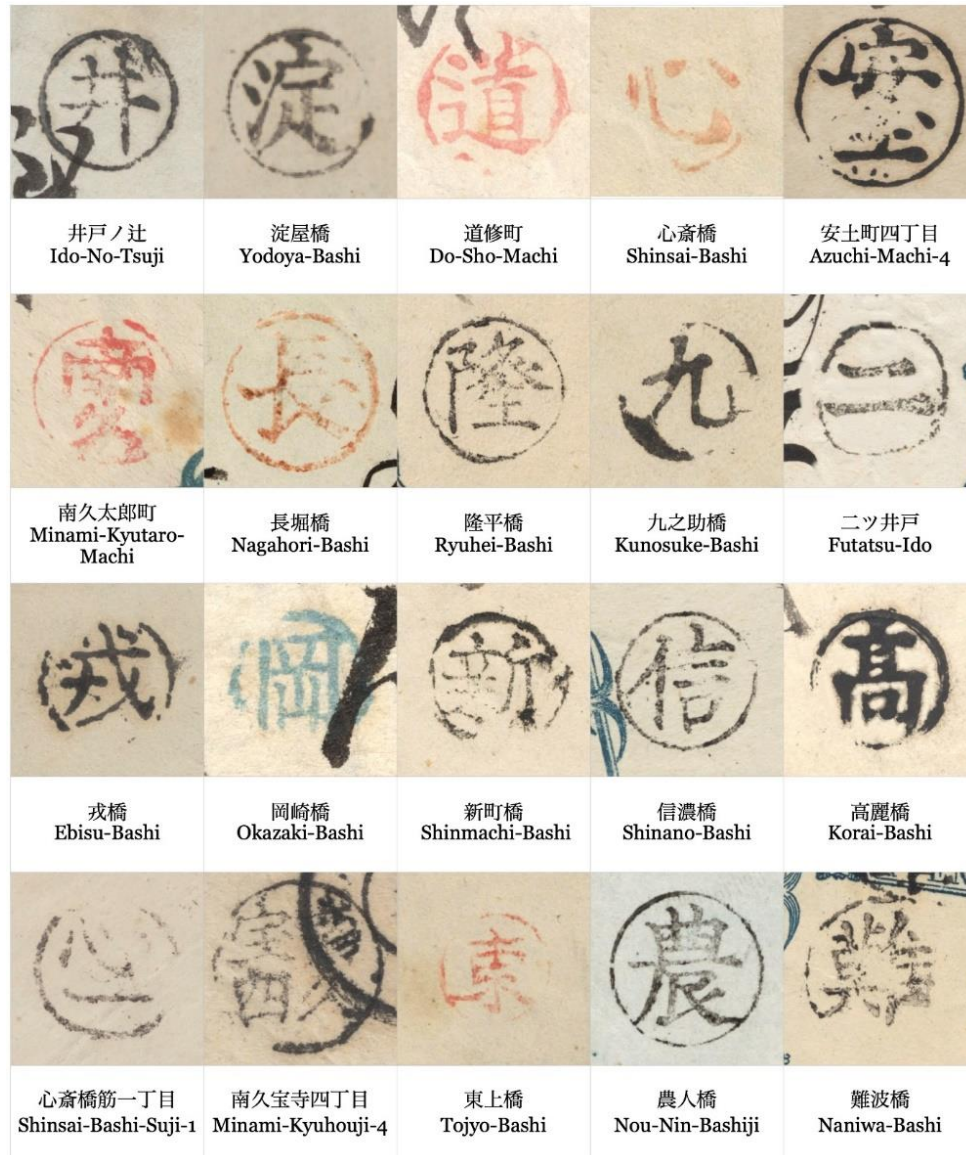 井
淀
道
心
安
土
井戸ノ辻
Ido-No-Tsuji
淀屋橋
Yodoya-Bashi
道修町
Do-Sho-Machi
心斎橋
Shinsai-Bashi
安土町四丁目
Azuchi-Machi-4
南
久
長
隆
九
二
南久太郎町
Minami-Kyutaro-
Machi
長堀橋
Nagahori-Bashi
隆平橋
Ryuhei-Bashi
九之助橋
Kunosuke-Bashi
二ツ井戸
Futatsu-Ido
戎
岡
新
信
髙
戎橋
Ebisu-Bashi
岡崎橋
Okazaki-Bashi
新町橋
Shinmachi-Bashi
信濃橋
Shinano-Bashi
高麗橋
Korai-Bashi
心
一
宝
四
東
農
難
心斎橋筋一丁目
Shinsai-Bashi-Suji-1
南久宝寺四丁目
Minami-Kyuhouji-4
東上橋
Tojyo-Bashi
農人橋
Nou-Nin-Bashiji
難波橋
Naniwa-Bashi